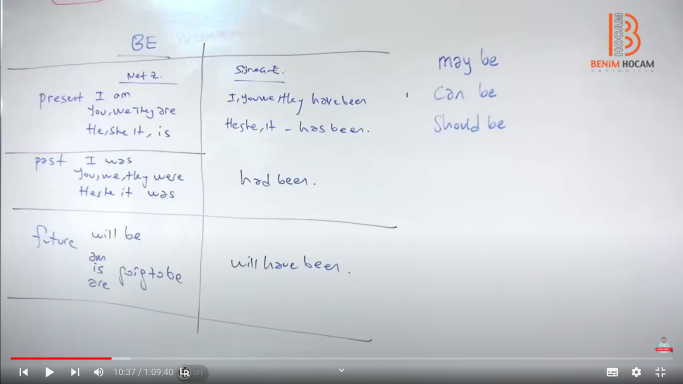 BE
Net z.
present I am
You, we they are
He, she it, is
past I was
You, we, they were
He she it was
future will be
am
is going to be
are
Süreç z.
I, you we they have been
He she, it - has been.
had been.
will have been.
may be
can be
Should be
HOCAM
BENİM HOCAM
10:37 / 1:09:40